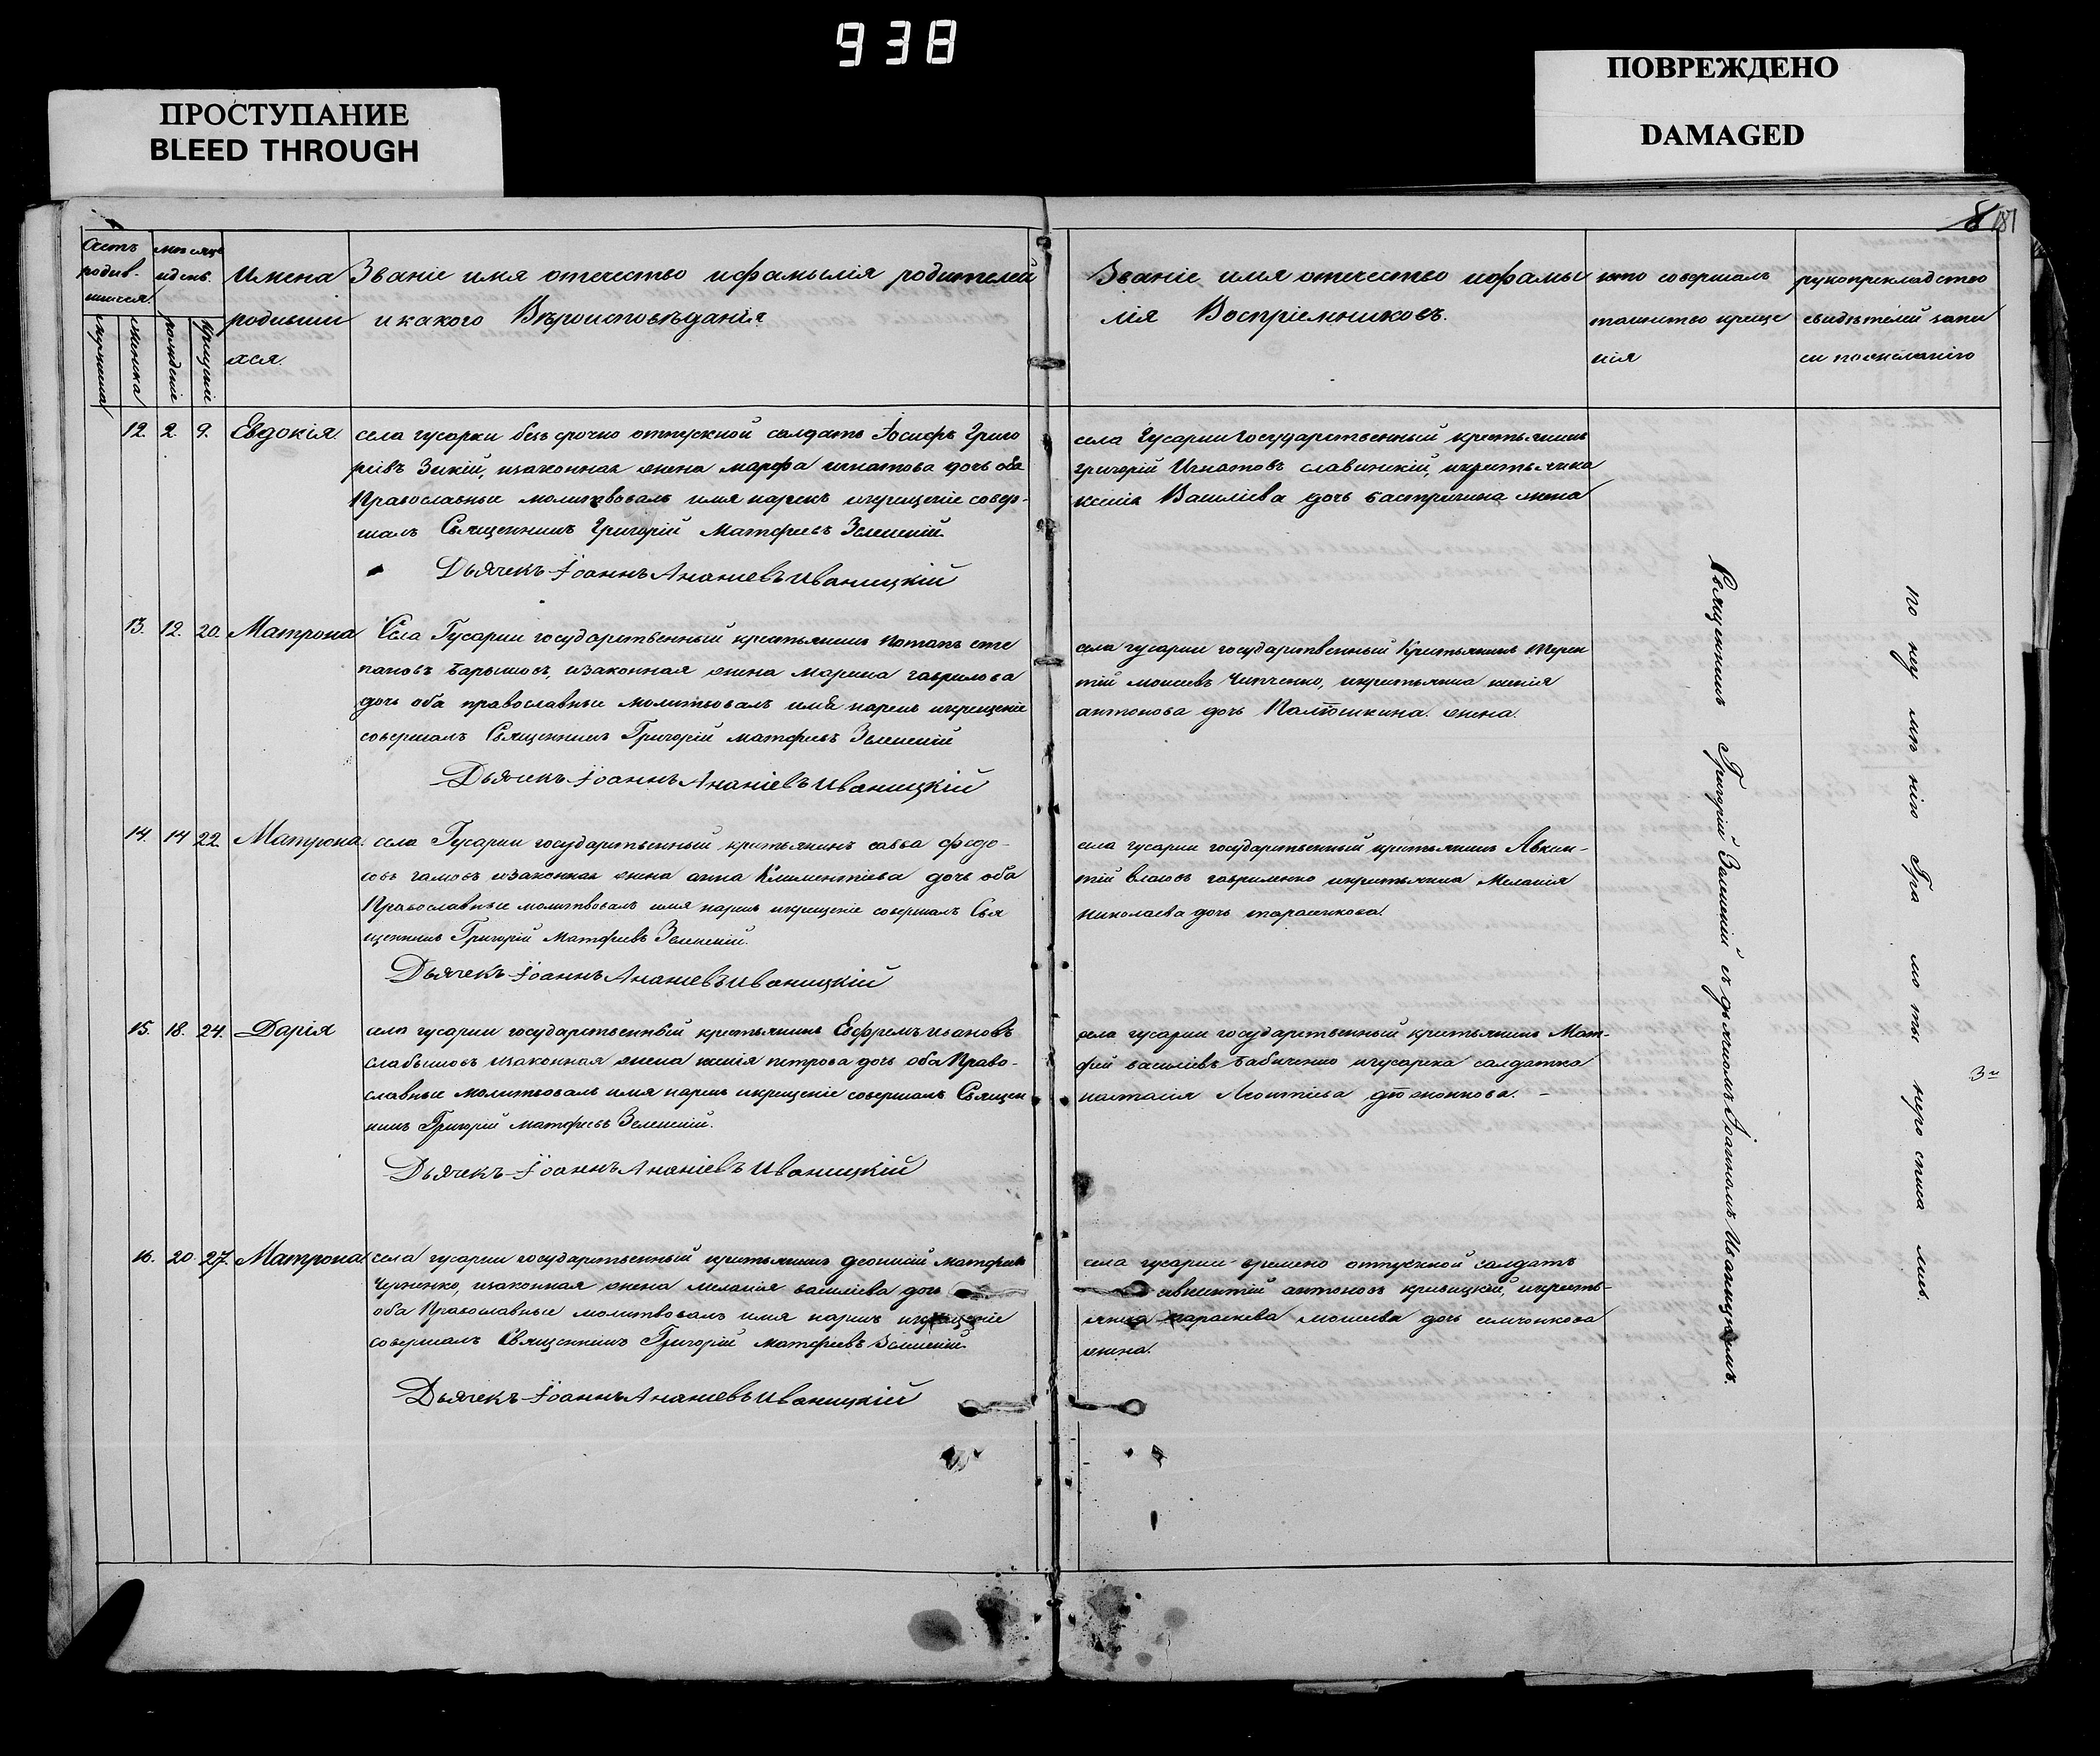 938
ПРОСТУПАНИЕ
BLEED THROUGH
ПОВРЕЖДЕНО
DAMAGED
8 181
Счетъ родив-
шихся.
мужеска
женска
мѣсяцъ
и день.
рожденіе
крещеніе
Имена
родивши
хся.
Званіе имя отечество и фамилія родителей
и какого Вѣроисповѣданія
Званіе имя отечество и фами
лія Воспріемниковъ.
кто совершалъ
таинство креще
нія
рукоприкладство
свидѣтелей запи
си по желанію
12. 2. 9. Евдокія.
села гусарки безъ срочно отпускной солдатъ Іосифъ Григо
ріевъ Зикій, изаконная жена марфа игнатова дочь оба
Православные молитвовалъ имя нарекъ икрещеніе совер-
шалъ Священникъ Григорій Матфеевъ Зеленскій
Дьячекъ Іоаннъ Ананіевъ Иваницкій
села Гусарки Государственный крестьянинъ
григорій Игнатовъ славинскій, икрестьянка
ксенія Василіева дочь жена
13. 12. 20. Матрона
Села Гусарки государственный крестьянинъ потапъ сте
пановъ изаконная жена марина гаврилова
дочь оба православные молитвовалъ имя нарекъ икрещеніе
совершалъ Священникъ Григорій матфеевъ Зеленскій
Дьячекъ Іоаннъ Ананіевъ Иваницкій
села гусарки государственный Крестьянинъ терен
тій моисеевъ Чипченко, икрестьянка ксенія
антонова дочь жена.
14. 14 22. Матрона.
села Гусарки государственный крестьянинъ савва федо-
ровъ изаконная жена анна Климентіева дочь оба
Православные молитвовалъ имя нарекъ икрещеніе совершалъ Свя
щенникъ Григорій Матфеевъ Зеленскій.
Дьячекъ Іоаннъ Ананіевъ Иваницкій
села гусарки государственный крестьянинъ Авксен-
тій власовъ гавриленко икрестьянка Меланія
Николаева дочь тарасенкова.
15. 18. 24. Дарія
села гусарки государственный крестьянинъ Ефремъ ивановъ
изаконная жена ксенія петрова дочь оба Право-
славные молитвовалъ имя нарекъ икрещеніе совершалъ Священ
никъ Григорій матфеевъ Зеленскій.
Дьячекъ Іоаннъ Ананіевъ Иваницкій
села гусарки государственный крестьянинъ Мат-
фей василіевъ бабиченко солдатка
наталія Леонтіева
16. 20 27. Матрона.
села гусарки государственный крестьянинъ матфеевъ
Черненко, изаконная жена меланія василіева дочь
оба Православные молитвовалъ имя нарекъ икрещеніе
совершалъ Священникъ Григорій матфеевъ Зеленскій.
Дьячекъ Іоаннъ Ананіевъ Иваницкій
села гусарки времено отпускной солдатъ
авксентій антоновъ кривицкій, икресть-
янка параскева моисеева дочь семчонкова
жена.
Священникъ Григорій Зеленскій съ дьячкомъ Іоанномъ Иваницкимъ.
по неумѣнію Грамоты неросписались.